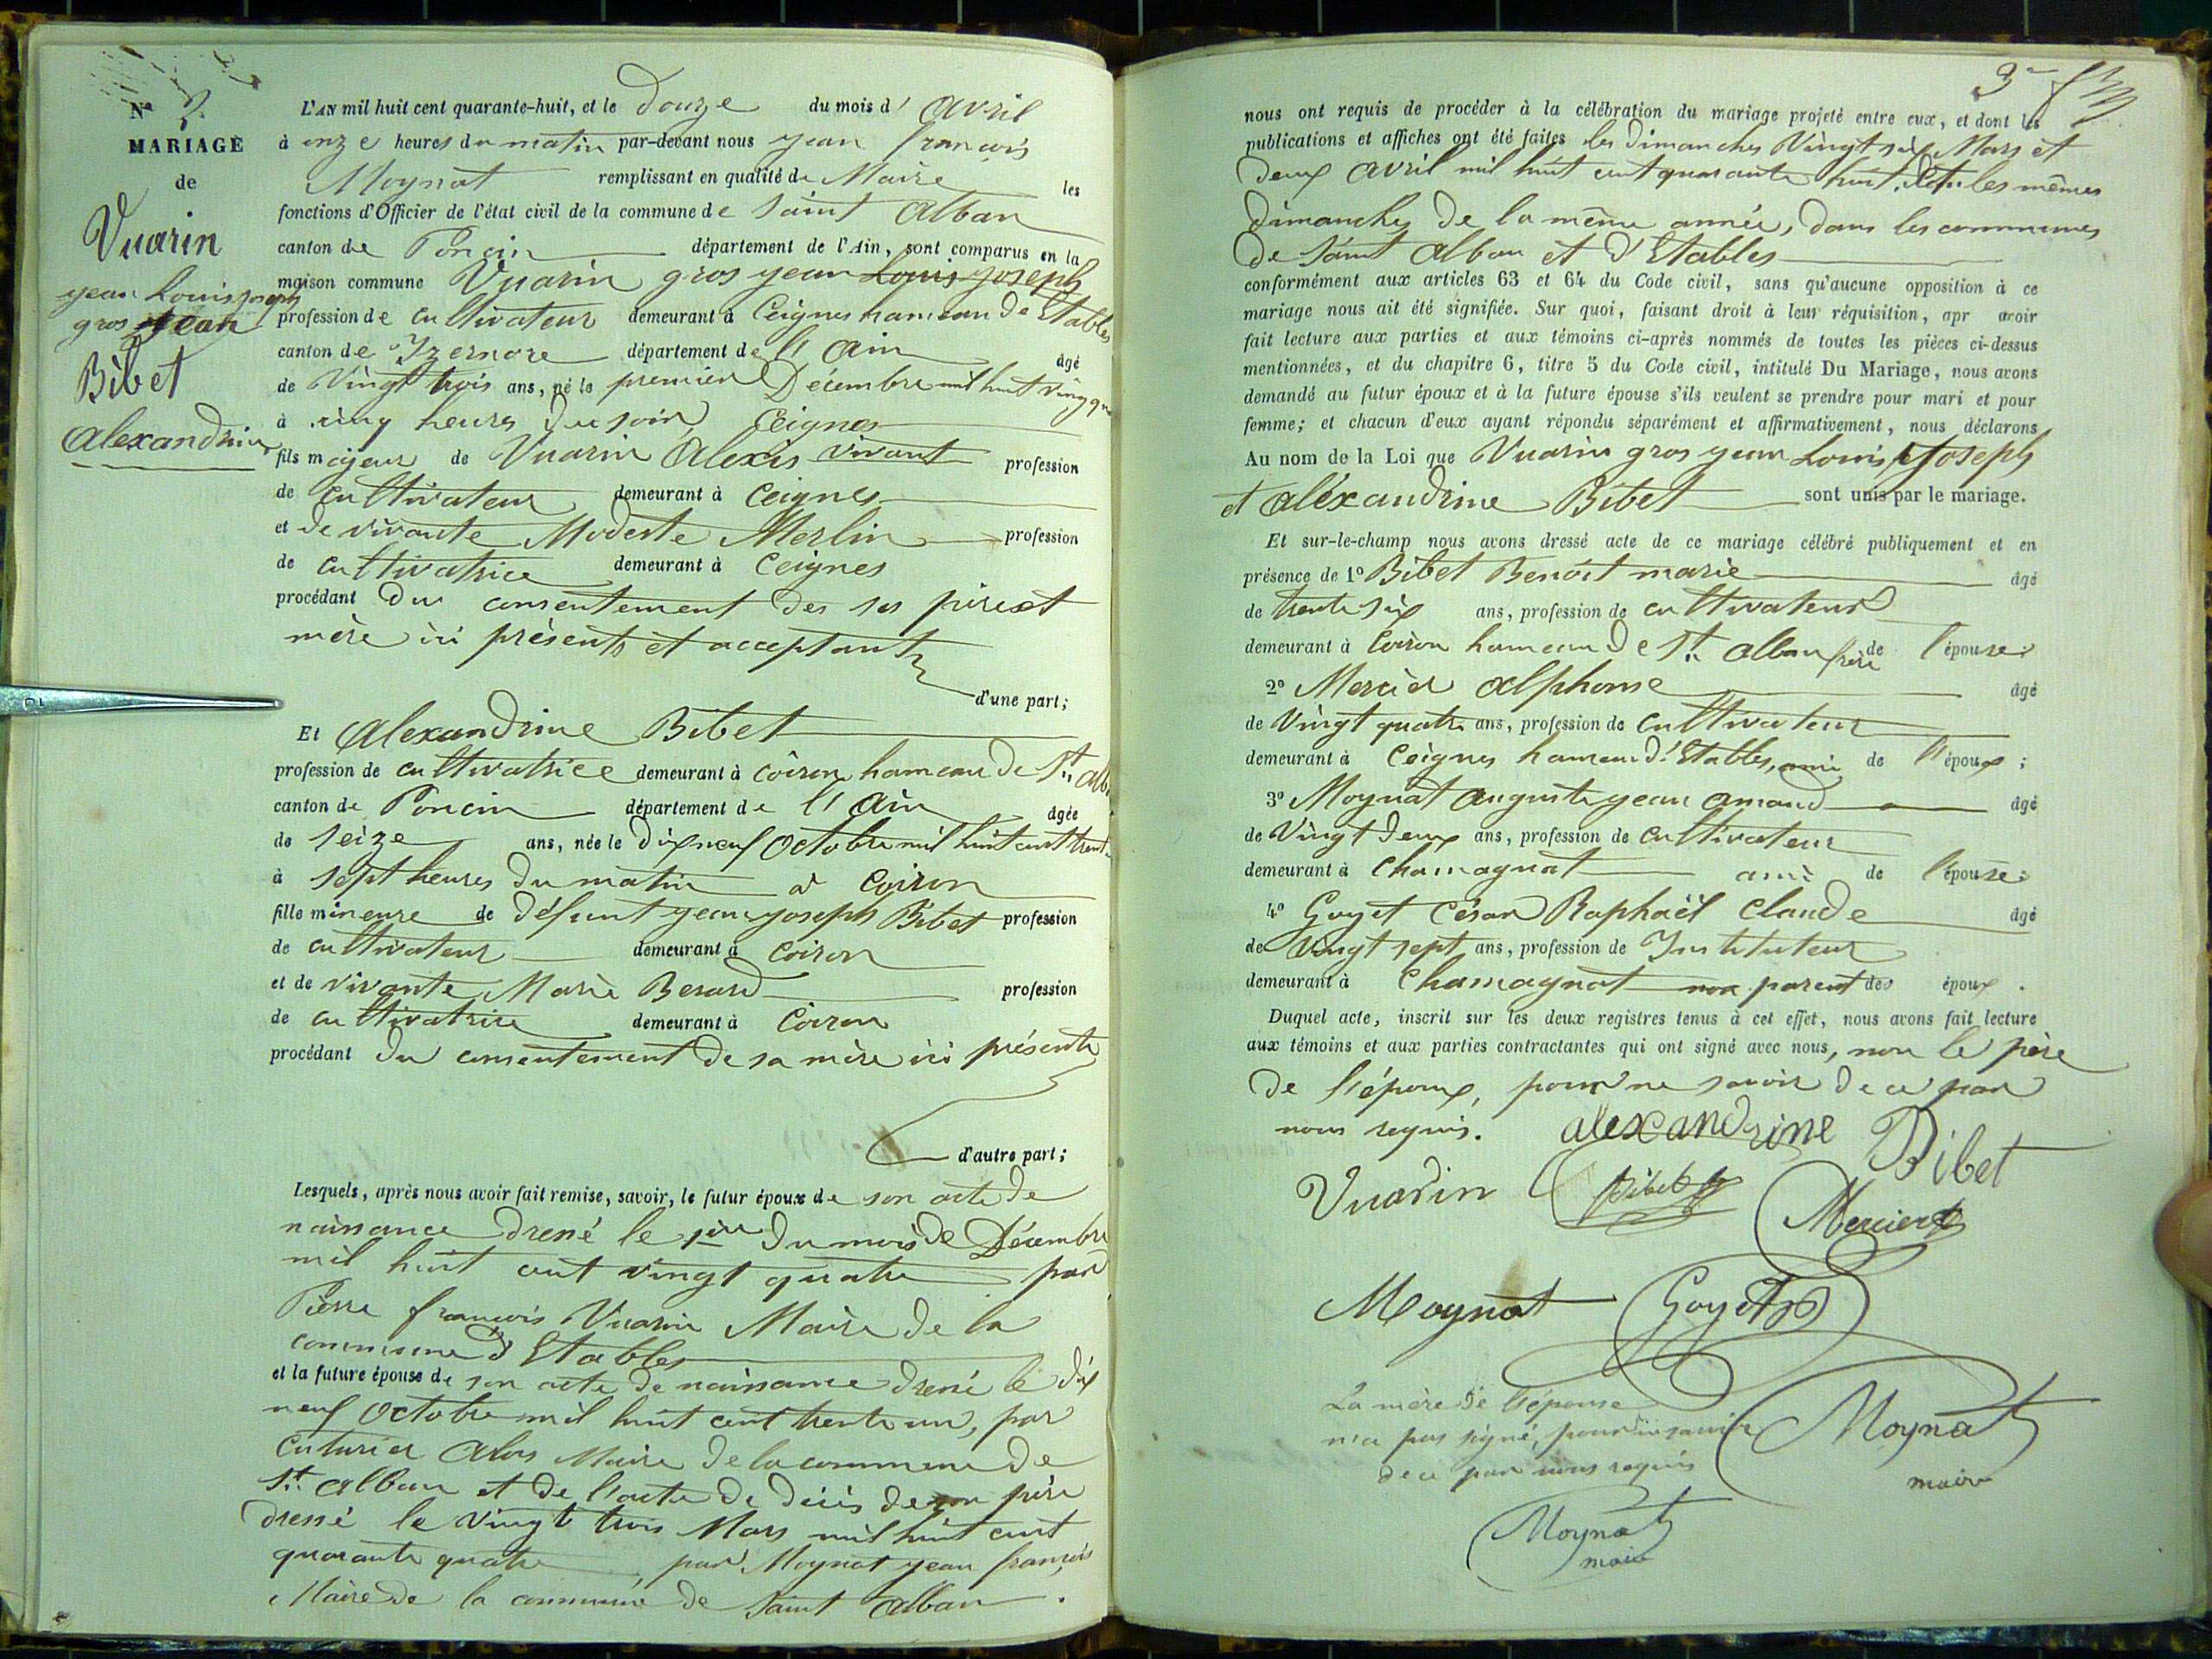 N° 2.
MARIAGE
de
Vuarin
jean Louis joseph
gros jean
Bibet
Alexandrine
L'AN mil huit cent quarante-huit, et le douze du mois d' Avril
à onze heures du matin par-devant nous jean françois
Moynat remplissant en qualité de Maire les
fonctions d'Officier de l'état civil de la commune de Saint Alban
canton de Poncin département de l'Ain, sont comparus en la
maison commune Vuarin gros jean Louis joseph
profession de cultivateur demeurant à Ceignes hameau de Etables
canton de Izernore département de l'Ain âgé
de Vingt trois ans, né le premier Décembre mil huit vingt
à cinq heures du soir Ceignes
fils majeur de Vuarin Alexis vivant profession
de cultivateur demeurant à Ceignes
et de vivante Modeste Merlin profession
de cultivatrice demeurant à Ceignes
procédant du consentement des ses père et
mère ici présents et acceptant
d'une part;
Et Alexandrine Bibet
profession de cultivatrice demeurant à Coiron hameau de St. Alb
canton de Poncin département de l'Ain âgée
de seize ans, née le dix neuf Octobre mil huit cent trente
à sept heures du matin à Coiron
fille mineure de défunt jean joseph Bibet profession
de cultivateur demeurant à Coiron
et de vivante Marie Berard profession
de cultivatrice demeurant à Coiron
procédant du consentement de sa mère ici présente
d'autre part;
Lesquels, après nous avoir fait remise, savoir, le futur époux de son acte de
naissance dressé le 1ier du mois de Décembre
mil huit cent vingt quatre par
Pierre françois Vuarin Maire de la
commune d'Etables
et la future épouse de son acte de naissance dressé le dix
neuf Octobre mil huit cent trente un, par
Couturier alors Maire de la commune de
St. Alban et de l'acte de décès de son père
dressé le vingt trois Mars mil huit cent
quarante quatre, par Moynat jean françois
Maire de la commune de Saint Alban.
3me
nous ont requis de procéder à la célébration du mariage projeté entre eux, et dont les
publications et affiches ont été faites les dimanches Vingt six Mars et
deux Avril mil huit cent quarante huit, les mêmes
dimanches de la même année, dans les communes
de Saint Alban et d'Etables
conformément aux articles 63 et 64 du Code civil, sans qu'aucune opposition à ce
mariage nous ait été signifiée. Sur quoi, faisant droit à leur réquisition, apr avoir
fait lecture aux parties et aux témoins ci-après nommés de toutes les pièces ci-dessus
mentionnées, et du chapitre 6, titre 5 du Code civil, intitulé Du Mariage, nous avons
demandé au futur époux et à la future épouse s'ils veulent se prendre pour mari et pour
femme; et chacun d'eux ayant répondu séparément et affirmativement, nous déclarons
Au nom de la Loi que Vuarin gros jean Louis Joseph
et Aléxandrine Bibet sont unis par le mariage.
Et sur-le-champ nous avons dressé acte de ce mariage célébré publiquement et en
présence de 1° Bibet Benoît marie âgé
de trente six ans, profession de cultivateur
demeurant à Coiron hameau de St. Alban frère de l'épouse;
2° Mercier Alphonse âgé
de Vingt quatre ans, profession de cultivateur
demeurant à Ceignes hameau d'Etables, ami de l'époux;
3° Moynat Auguste jean Amand âgé
de Vingt deux ans, profession de cultivateur
demeurant à Chamagnat ami de l'épouse;
4° Goyet César Raphaël Claude âgé
de vingt sept ans, profession de Instituteur
demeurant à Chamagnat non parent des époux.
Duquel acte, inscrit sur les deux registres tenus à cet effet, nous avons fait lecture
aux témoins et aux parties contractantes qui ont signé avec nous, non le père
de l'époux, pour ne savoir de ce par
nous requis. alexandrine Bibet
Vuarin Bibet Mercier
Moynat Goyet
La mère de l'épouse
n'a pas signé, pour ne savoir
de ce par nous requis
Moynat
maire
Moynat
maire